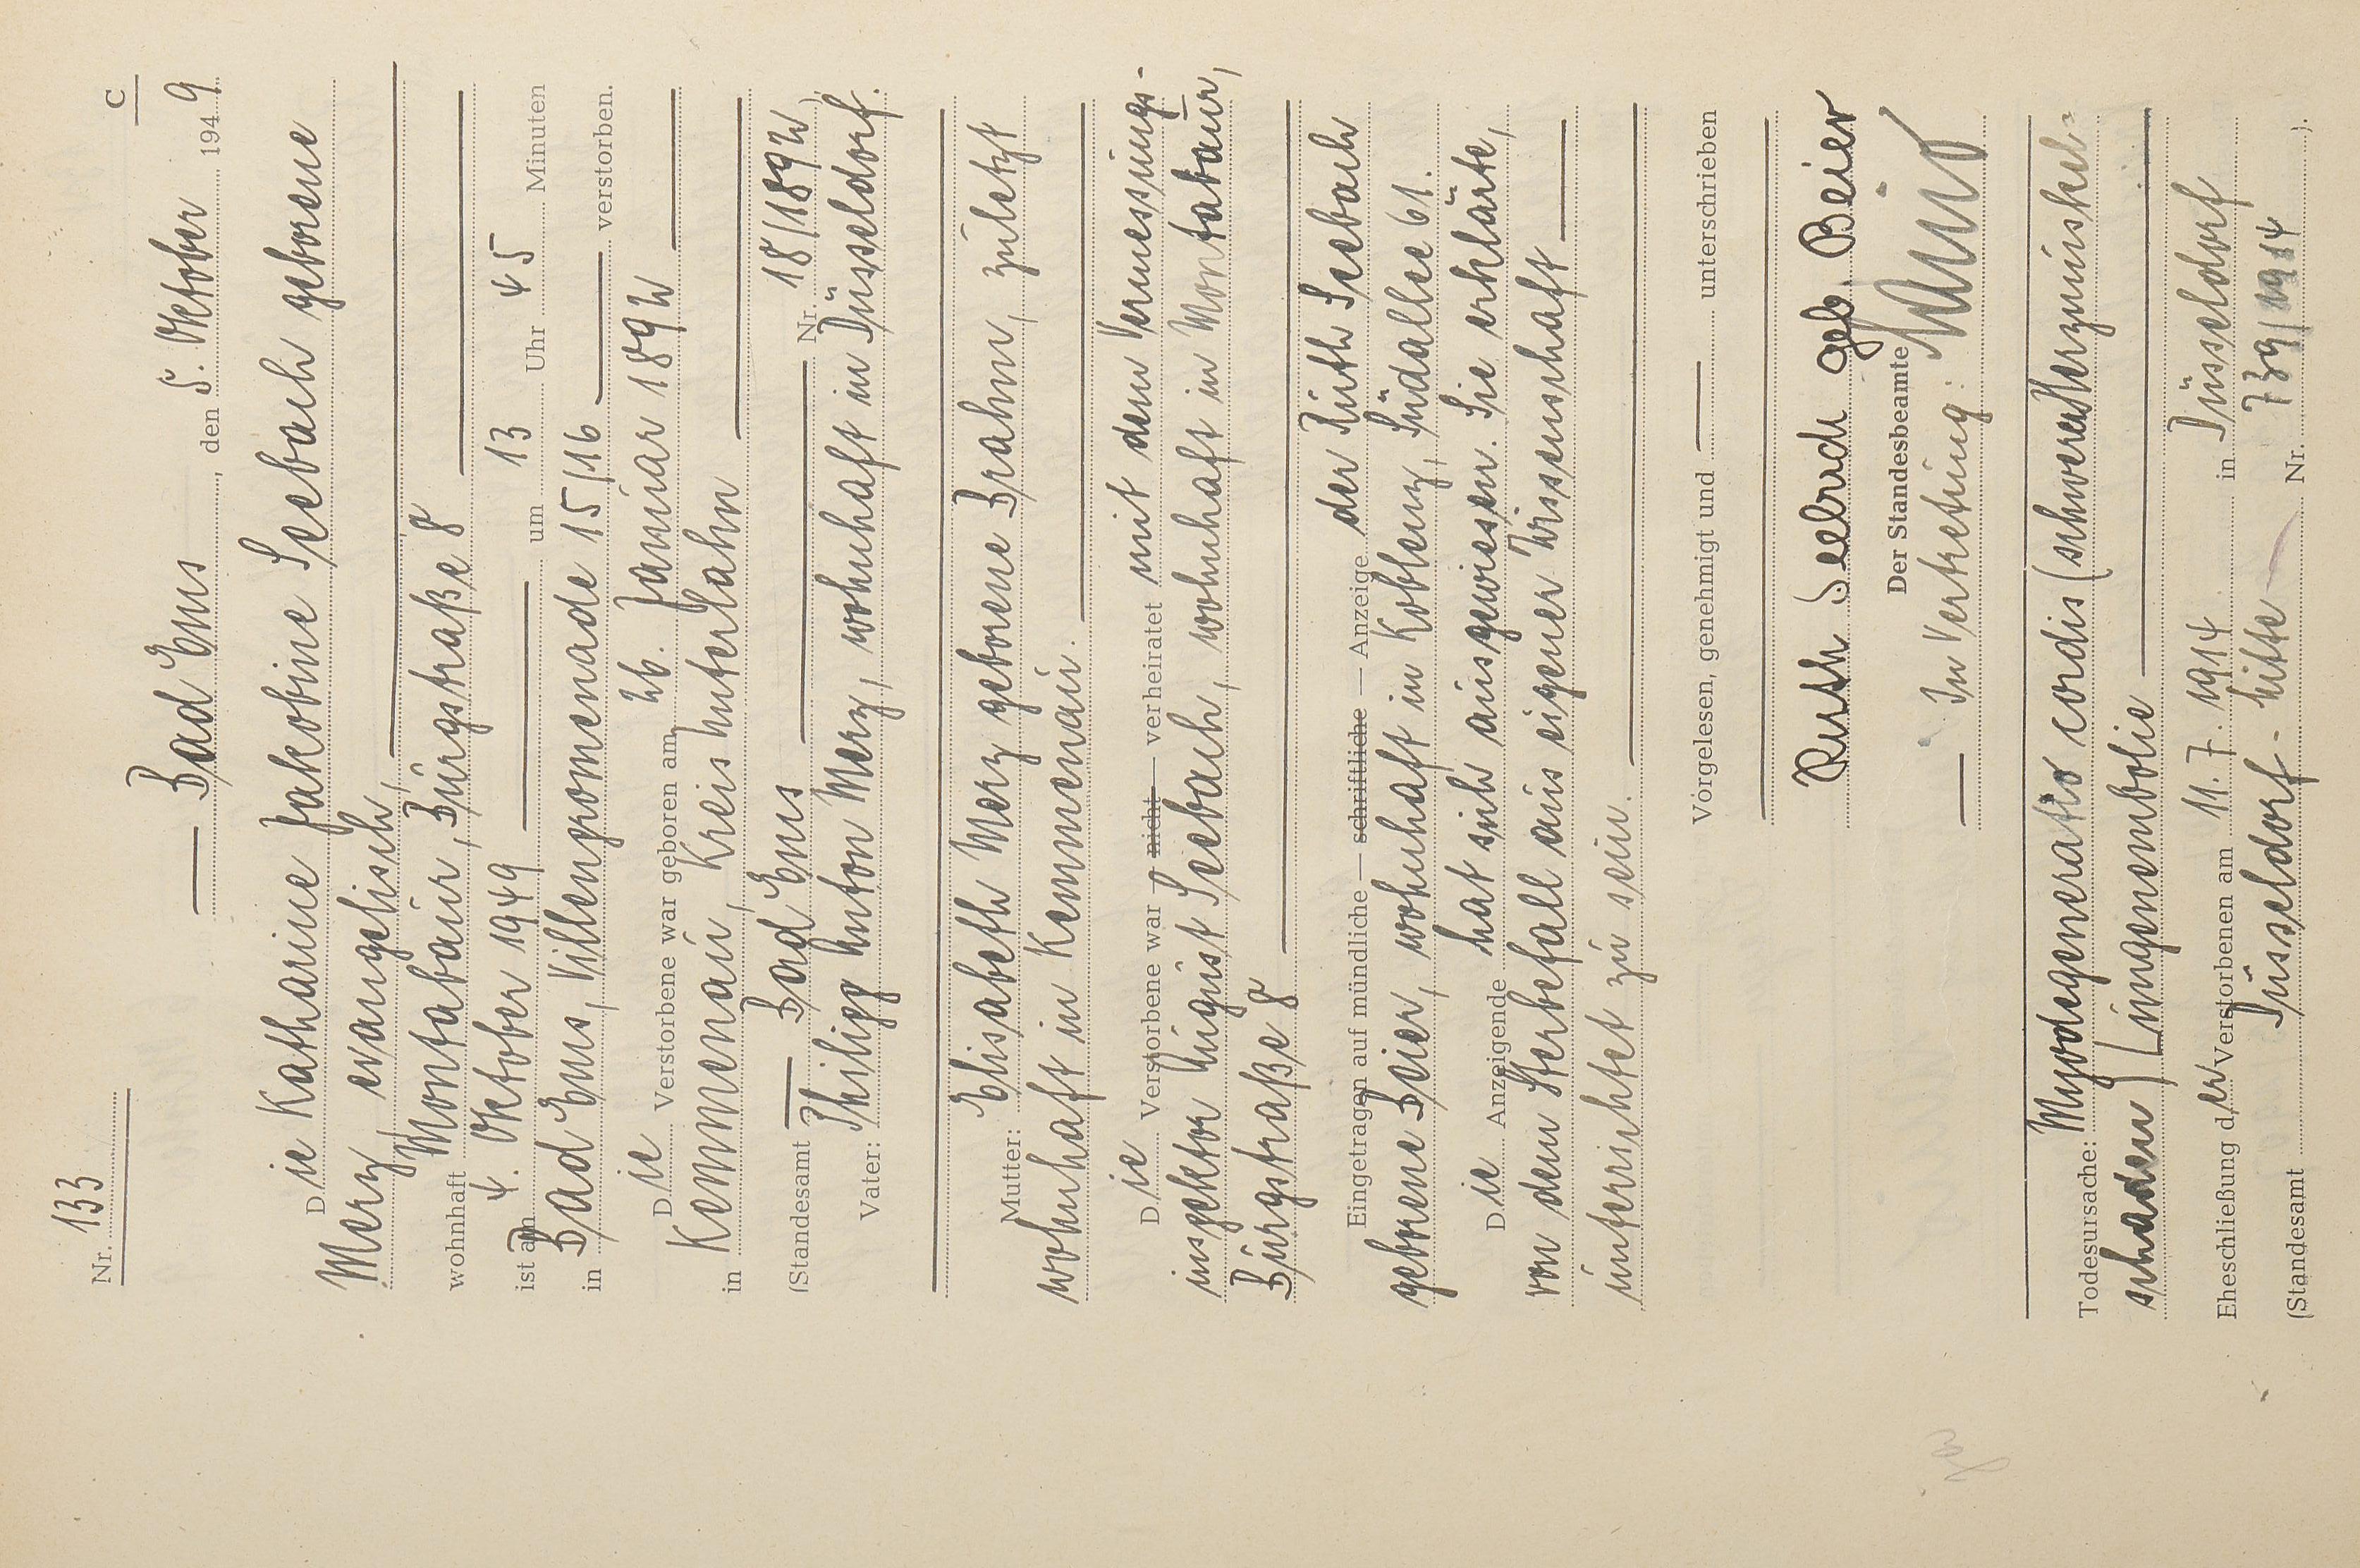 C
Nr. 133
Bad Ems, den 5. Oktober 1949
Die Katharine Jakobine Seebach geborene
Merz, evangelisch,
wohnhaft Montabaur, Burgstraße 8
ist am 4. Oktober 1949 um 13 Uhr 45 Minuten
in Bad Ems, Villenpromenade 15/16 verstorben.
Die Verstorbene war geboren am 26. Januar 1892
in Kemmenau, Kreis Unterlahn
(Standesamt Bad Ems Nr. 18/1892)
Vater: Philipp Anton Merz, wohnhaft in Düsseldorf.
Mutter: Elisabeth Merz geborene Brahm, zuletzt
wohnhaft in Kemmenau.
Die Verstorbene war — nicht — verheiratet mit dem Vermessungs-
inspektor August Seebach, wohnhaft in Montabaur,
Burgstraße 8
Eingetragen auf mündliche — schriftliche — Anzeige der Ruth Seebach
geborene Beier, wohnhaft in Koblenz, Südallee 61.
Die Anzeigende hat sich ausgewiesen. Sie erklärte,
von dem Sterbefall aus eigener Wissenschaft
unterrichtet zu sein.
Vorgelesen, genehmigt und unterschrieben
Ruth Seebach geb. Beier
Der Standesbeamte
In Vertretung:
Todesursache: Myodegeneratio cordis (schwerer Herzmuskel-
schaden) Lungenembolie
Eheschließung der Verstorbenen am 11. 7. 1914 in Düsseldorf
(Standesamt Düsseldorf-Mitte Nr. 739/1914).